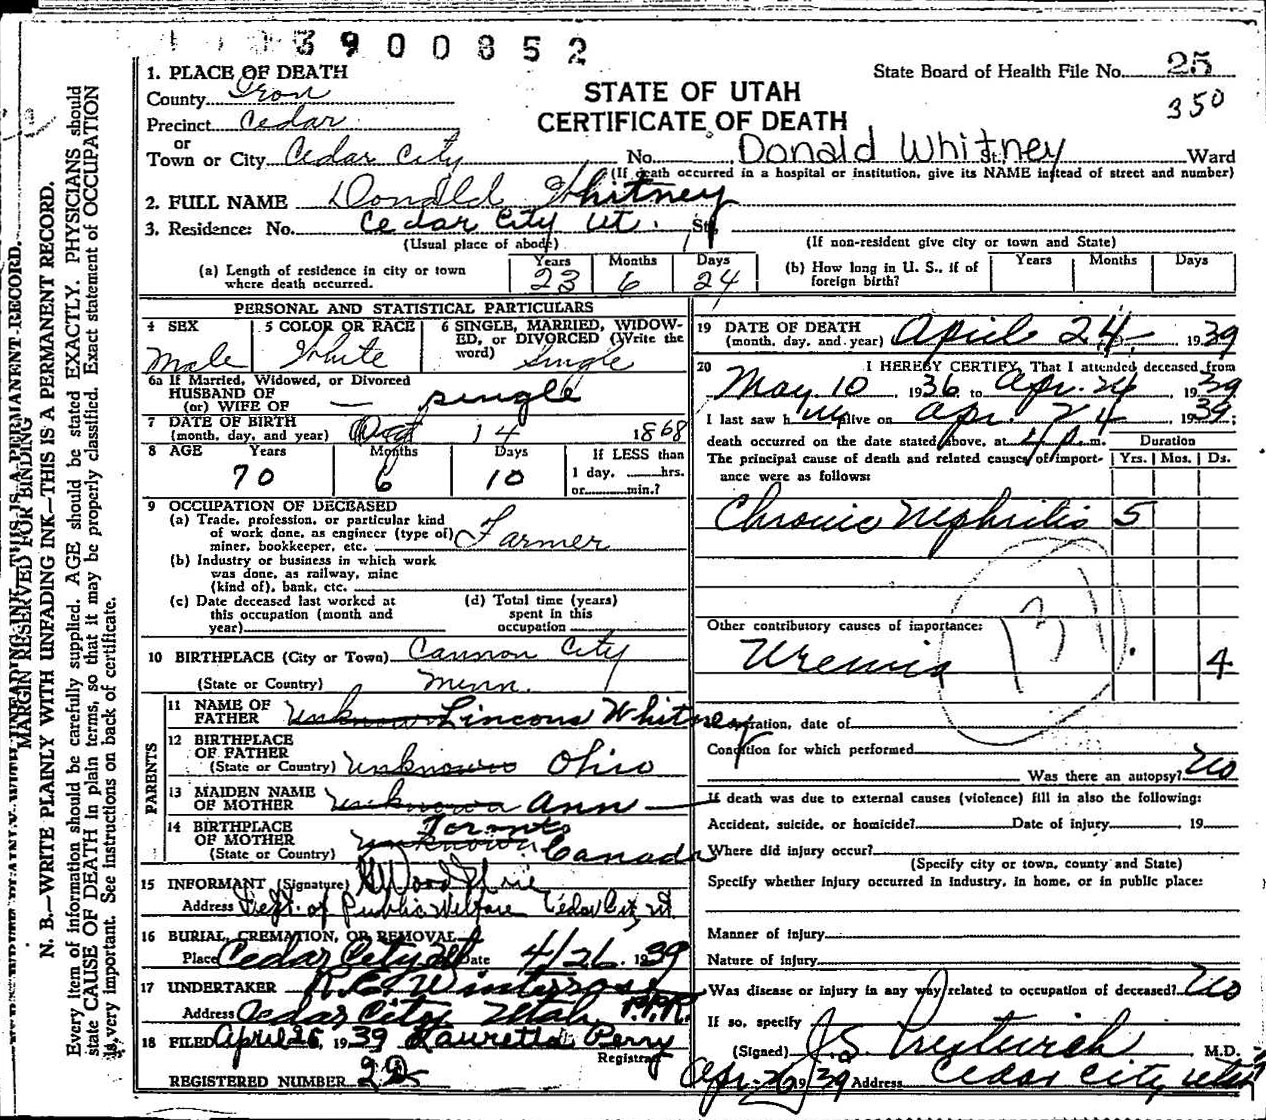 3900852
State Board of Health File No. 25
350
STATE OF UTAH
CERTIFICATE OF DEATH
1. PLACE OF DEATH
County Iron
Precinct Cedar
or
Town or City Cedar City No. Donald Whitney St. Ward
(If death occurred in a hospital or institution, give its NAME instead of street and number)
2. FULL NAME Donald Whitney
3. Residence: No. Cedar City Ut. St.
(Usual place of abode) (If non-resident give city or town and State)
(a) Length of residence in city or town where death occurred. Years 23 Months 6 Days 24
(b) How long in U. S., if of foreign birth? Years Months Days
PERSONAL AND STATISTICAL PARTICULARS
4 SEX Male
5 COLOR OR RACE White
6 SINGLE, MARRIED, WIDOWED, OR DIVORCED (Write the word) Single
6a If Married, Widowed, or Divorced
HUSBAND OF
(or) WIFE OF — single
7 DATE OF BIRTH
(month, day, and year) Oct 14 1868
8 AGE Years 70 Months 6 Days 10 If LESS than 1 day, hrs. or min.?
9 OCCUPATION OF DECEASED
(a) Trade, profession, or particular kind
of work done, as engineer (type of)
miner, bookkeeper, etc. Farmer
(b) Industry or business in which work
was done, as railway, mine
(kind of), bank, etc.
(c) Date deceased last worked at
this occupation (month and
year)
(d) Total time (years)
spent in this
occupation
10 BIRTHPLACE (City or Town) Cannon City
(State or Country) Minn.
PARENTS
11 NAME OF
FATHER Unknown Lincons Whitney
12 BIRTHPLACE
OF FATHER
(State or Country) Unknown Ohio
13 MAIDEN NAME
OF MOTHER Unknown Ann —
14 BIRTHPLACE
OF MOTHER
(State or Country) Unknown Toronto Canada
15 INFORMANT (Signature)
Address Dept. of Public Welfare Cedar City, Ut.
16 BURIAL, CREMATION, OR REMOVAL
Place Cedar City Ut Date 4/26 1939
17 UNDERTAKER
Address Cedar City Utah
18 FILED April 25, 1939 Lauretta Perry
Registrar
REGISTERED NUMBER
19 DATE OF DEATH
(month, day, and year) April 24, 1939
20 I HEREBY CERTIFY, That I attended deceased from
May 10 1936 to Apr. 24, 1939
I last saw him alive on Apr. 24, 1939;
death occurred on the date stated above, at 4 p. m. Duration
The principal cause of death and related causes of import- Yrs. Mos. Ds.
ance were as follows:
Chronic Nephritis 5
Other contributory causes of importance:
Uremia 4
Operation, date of
Condition for which performed
Was there an autopsy? No
If death was due to external causes (violence) fill in also the following:
Accident, suicide, or homicide? Date of injury 19
Where did injury occur?
(Specify city or town, county and State)
Specify whether injury occurred in industry, in home, or in public place:
Manner of injury
Nature of injury
Was disease or injury in any way related to occupation of deceased? No
If so, specify
(Signed) J.S. Prestwich M.D.
Apr. 26 1939 Address Cedar City Utah
MARGIN RESERVED FOR BINDING
N. B.—WRITE PLAINLY WITH UNFADING INK—THIS IS A PERMANENT RECORD.
Every item of information should be carefully supplied. AGE should be stated EXACTLY. PHYSICIANS should
state CAUSE OF DEATH in plain terms, so that it may be properly classified. Exact statement of OCCUPATION
is very important. See instructions on back of certificate.